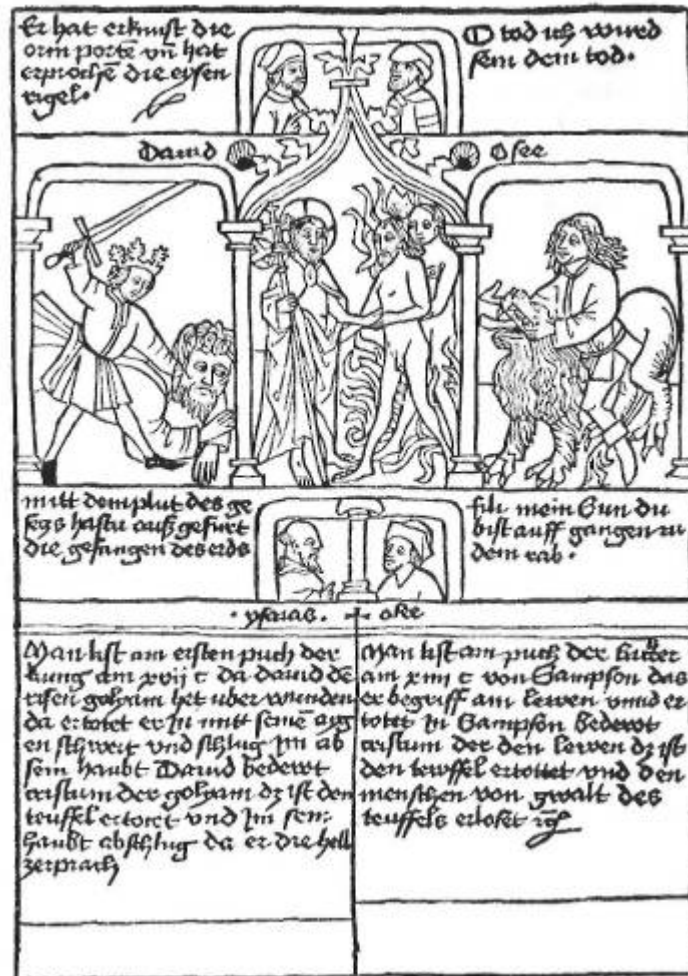 Er hat erknist die
orin porte vn̄ hat
erprochē die eysen
rigel.
O tod ich wurd
sein dem tod.
Dauid
Osee
mitt dem plut des ge
segs hastu auß gefurt
die gefangen des erds
fili mein Sun du
bist auff gangen zu
dem rab.
. ysaias.
oke
Man list am ersten puch der
kung am xvij c da dauid dē
risen golyam het uber wunden
da ertotet er In mitt seinē ayg
en schwert vnd schlug Im ab
sein haubt Dauid bedewt
cristum der golyam dz ist den
teuffel ertotet vnd Im sein
haubt abschlug da er die hell
zerprach
Man list am puch der
am xiiij c von Sampson das
er begriff am lewen vnnd er
totet In Sampson bedewt
cristum der den lewen dz ist
den tewffel ertottet vnd den
menschen von gwalt des
teuffels erloset